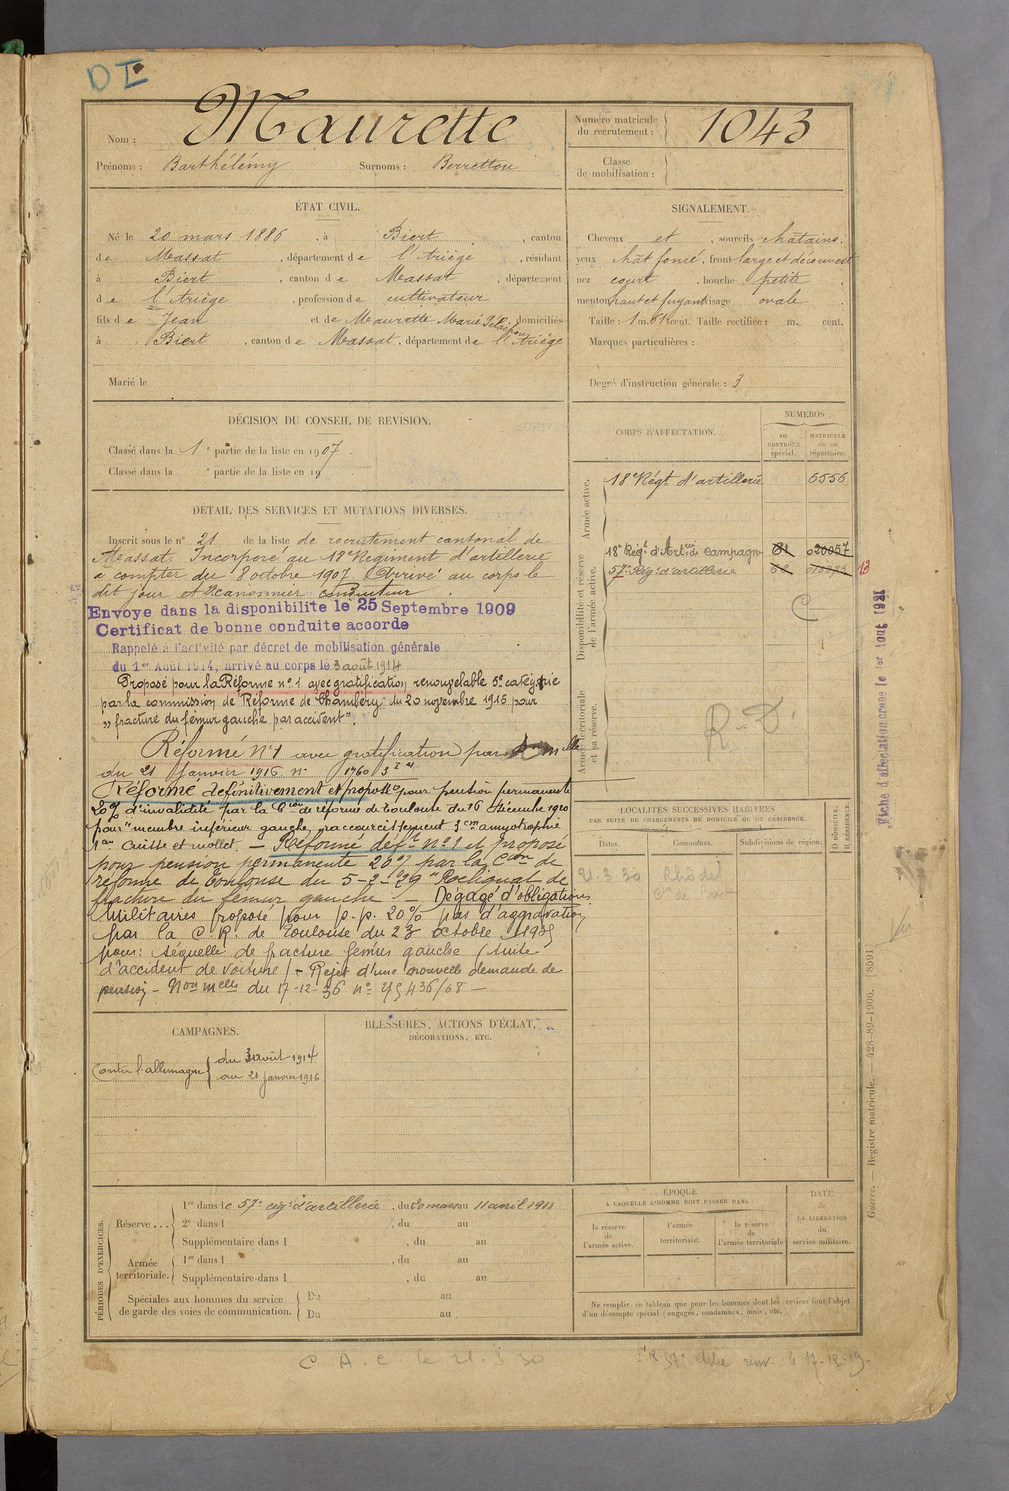 DI
Nom : Maurette
Prénoms : Barthélémy Surnoms : Berrettou
Numéro matricule du recrutement : 1043
Classe de mobilisation :
ÉTAT CIVIL.
Né le 20 mars 1886, à Biert, canton
de Massat, département de l'Ariège, résidant
à Biert, canton de Massat, département
de l'Ariège, profession de cultivateur
fils de Jean et de Maurette Marie domiciliés
à Biert, canton de Massat, département de l'Ariège
Marié le
SIGNALEMENT.
Cheveux et, sourcils chatains.
yeux chat foncé, front large et découvert
nez court, bouche petite,
menton haut et fuyant visage ovale
Taille : 1 m. 61 cent. Taille rectifiée : m. cent.
Marques particulières :
Degré d'instruction générale : 3
DÉCISION DU CONSEIL DE REVISION.
Classé dans la 1e partie de la liste en 1907.
Classé dans la e partie de la liste en 19
DÉTAIL DES SERVICES ET MUTATIONS DIVERSES.
Inscrit sous le n° 21 de la liste de recrutement cantonal de
Massat. Incorporé au 18e Régiment d'artillerie
à compter du 8 octobre 1907. Arrivé au corps le
dit jour et 2e canonnier conducteur.
Envoye dans la disponibilite le 25 Septembre 1909
Certificat de bonne conduite accorde
Rappelé à l'activité par décret de mobilisation générale
du 1er Août 1914, arrivé au corps le 3 août 1914
Proposé pour la Réforme n° 1 avec gratification renouvelable 5e catégorie
par la commission de Réforme de Chambéry du 20 novembre 1915 pour
"fracture du fémur gauche par accident".
Réformé N° 1 avec gratification par
du 21 Janvier 1916 n° 1760
Réformé définitivement et proposé pour pension permanente
20% d'invalidité par la Cion de réforme de Toulouse du 16 décembre 1920
pour "membre inférieur gauche, raccourcissement 3 cm amyotrophie
cuisse et mollet. — Réforme défve n° 1 et proposé
pour pension permanente 20% par la Cion de
réforme de Toulouse du 5-2-29 "Reliquat de
fracture du fémur gauche" — Dégagé d'obligations
Militaires proposé pour p.p. 20% pas d'aggravation
par la C.R. de Toulouse du 23 octobre 1935
pour: séquelle de fracture fémur gauche (suite
d'accident de voiture) - Rejet d'une nouvelle demande de
pension - Non melle du 17-12-36 n°
CORPS D'AFFECTATION.
NUMÉROS
au CONTRÔLE spécial.
MATRICULE ou au répertoire.
Armée active.
18e Régt d'artillerie 6556
Disponibilité et réserve de l'armée active.
18e Régt d'Artrie de Campagne 61 020057
57e Régt d'artillerie
13
C
Armée territoriale et sa réserve.
R-D
LOCALITÉS SUCCESSIVES HABITÉES
PAR SUITE DE CHANGEMENTS DE DOMICILE OU DE RÉSIDENCE.
Dates. Communes. Subdivisions de région. D DOMICILE. R RÉSIDENCE.
21.3.30
CAMPAGNES.
Contre l'allemagne du 3 août 1914
au 21 janvier 1916
BLESSURES, ACTIONS D'ÉCLAT,
DÉCORATIONS, ETC.
PÉRIODES D'EXERCICES.
Réserve... 1re dans le 57e régt d'artillerie, du 20 mars au 11 avril 1911
2e dans l , du au
Supplémentaire dans l , du au
Armée territoriale. 1re dans l , du au
Supplémentaire dans l , du au
Spéciales aux hommes du service de garde des voies de communication. Du au
Du au
ÉPOQUE
À LAQUELLE L'HOMME DOIT PASSER DANS :
la réserve de l'armée active.
l'armée territoriale.
la réserve de l'armée territoriale.
DATE de LA LIBÉRATION du service militaire.
Ne remplir ce tableau que pour les hommes dont les services font l'objet
d'un décompte spécial (engagés, condamnés, omis, etc.).
Guerre. — Registre matricule. — 428-89-1906. [8591]
Fiche d'affectation créée le 1er Aout 1921
C.A.C. le 21.3.30